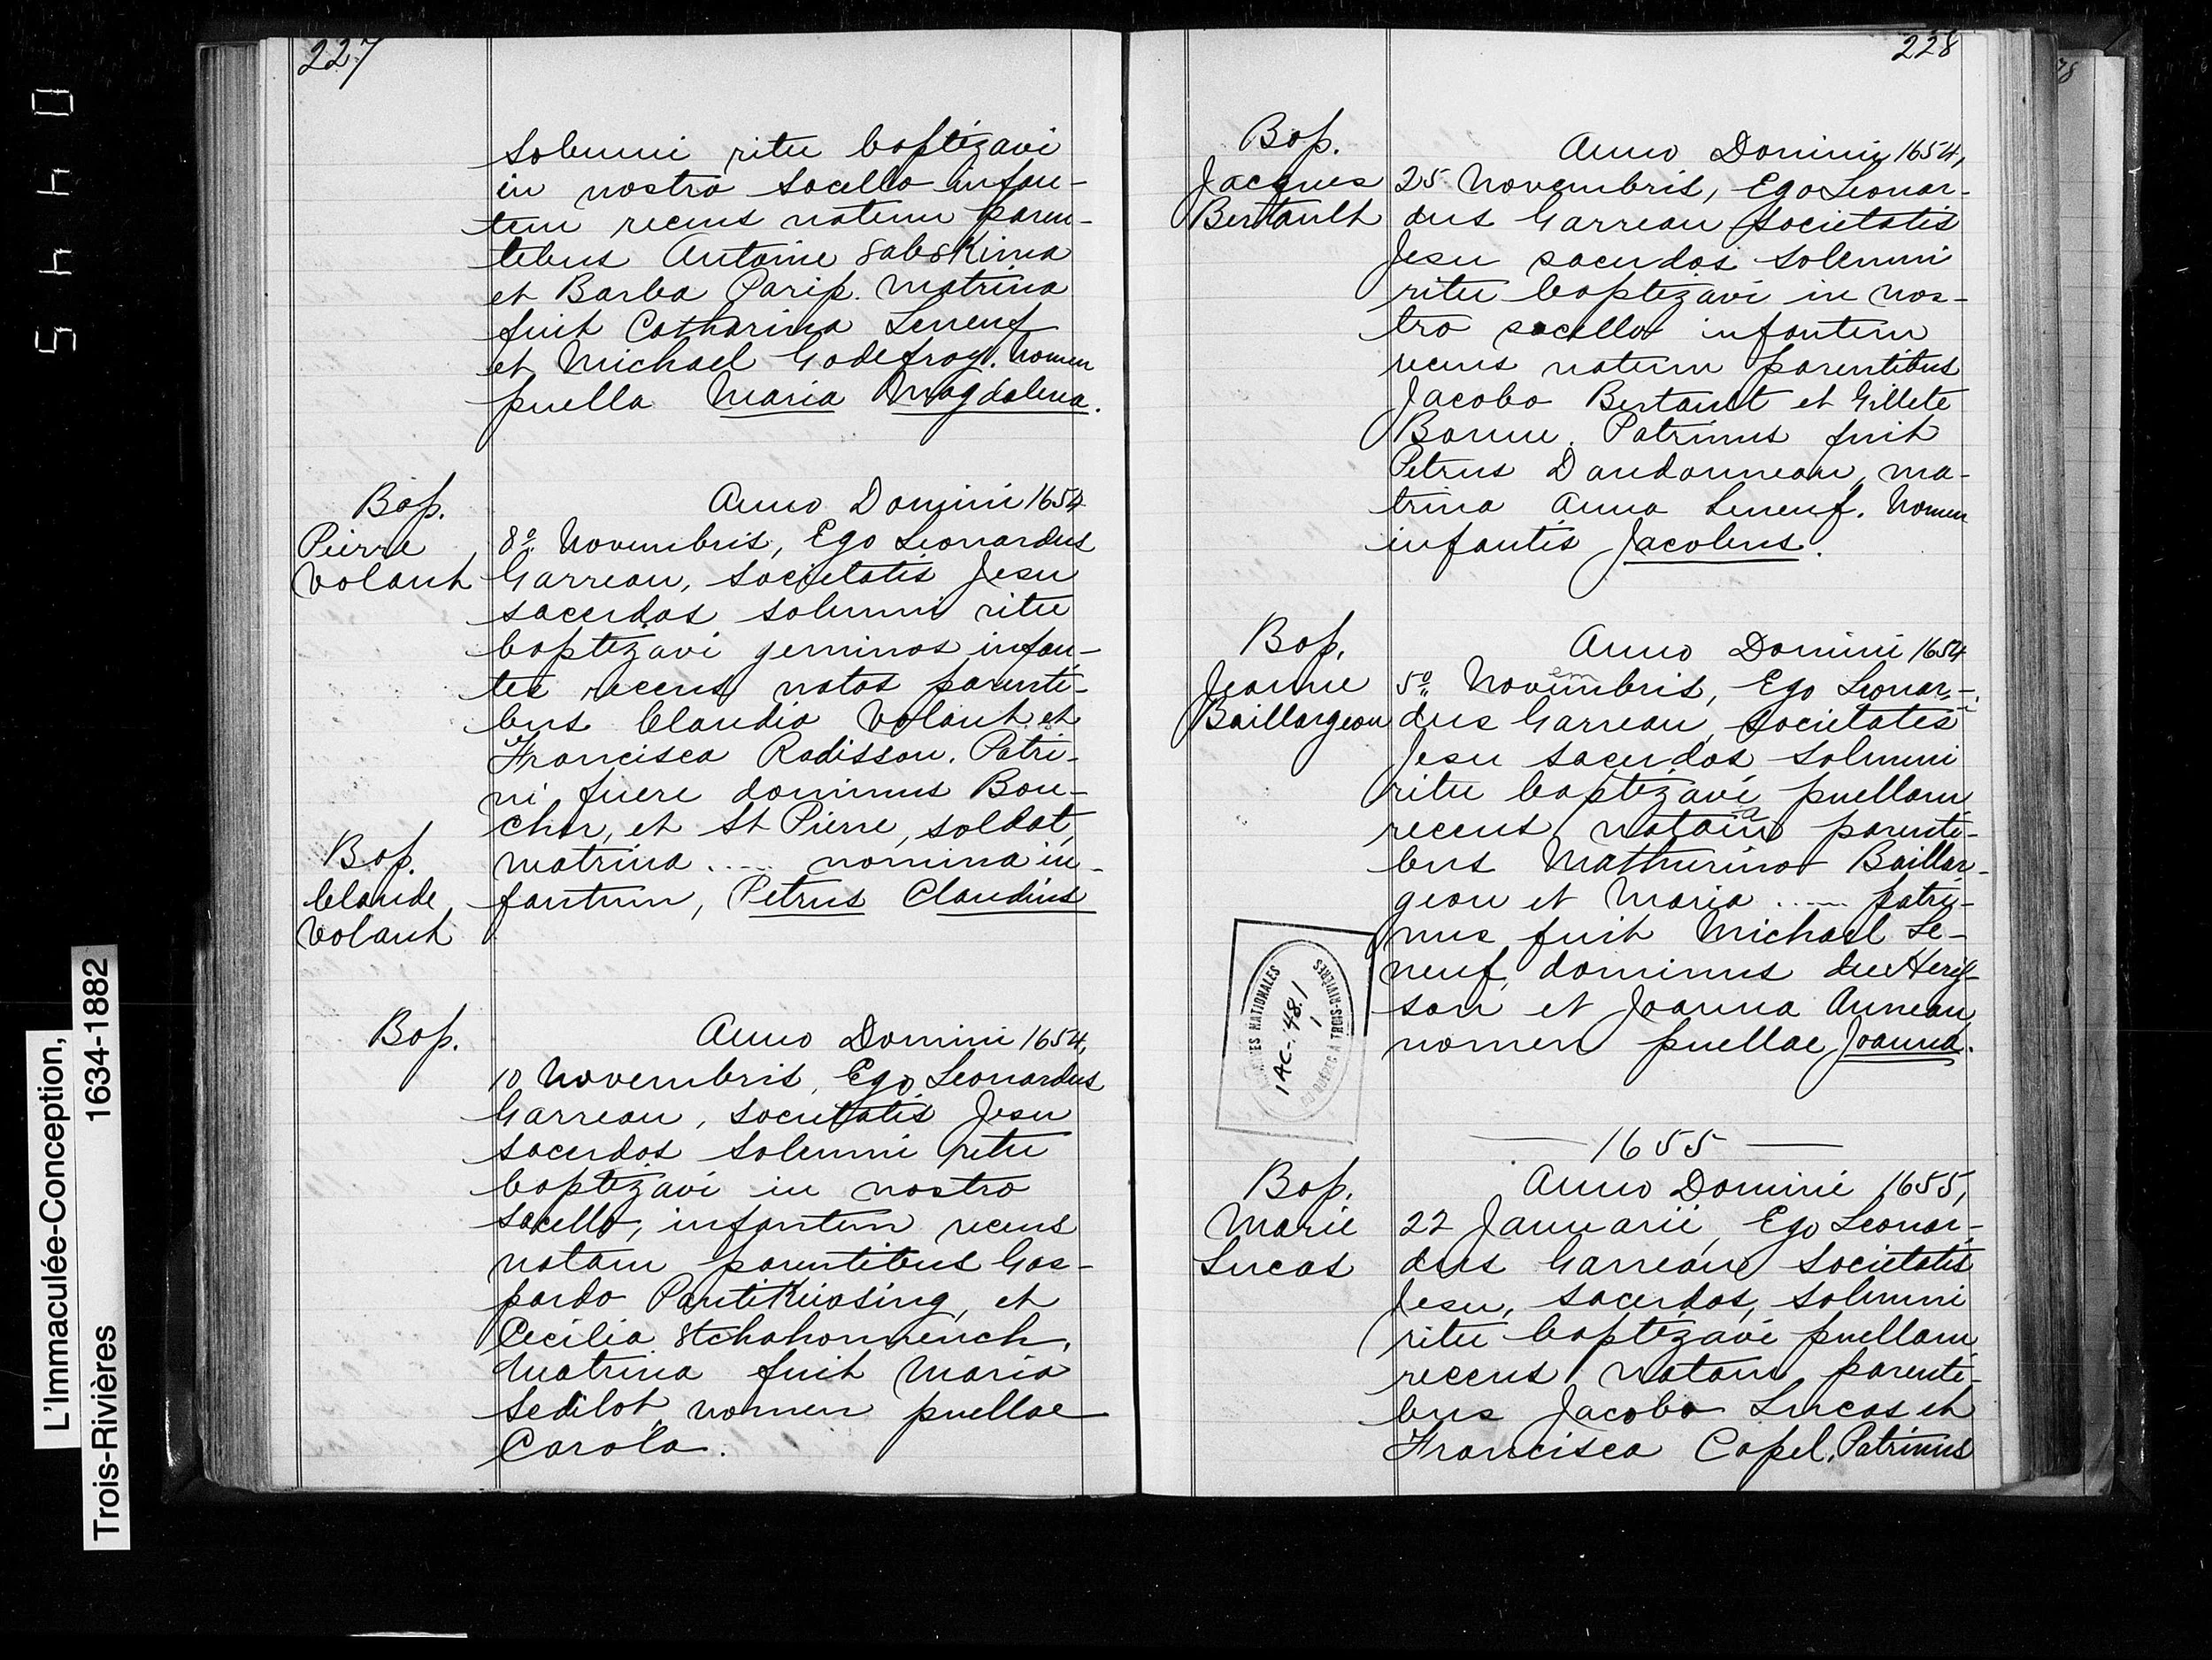 227
solemni ritu baptizavi
in nostro sacello infan-
tem recens natum paren-
tibus Antoine 8ab8Kima
et Barba Parip. Matrina
fuit Catharina Leneuf
et Michael Godefroy. Nomen
puella Maria Magdalena.
Bap.
Pierre
Volant
Anno Domini 1654
8º Novembris, Ego Leonardus
Garreau, societatis Jesu
sacerdos solemni ritu
baptizavi geminos infan-
tes recens natos parenti-
bus Claudio Volant et
Francisca Radisson. Patri-
ni fuere dominus Bou-
cher, et St Pierre, soldat,
matrina .... nomina in-
fantum, Petrus Claudius
Bap.
Claude
Volant
Bap.
Anno Domini 1654,
10 Novembris, Ego Leonardus
Garreau, societatis Jesu
sacerdos solemni ritu
baptizavi in nostro
sacello, infantem recens
natam parentibus Gas-
pardo PantiKiosing, et
Cecilia 8tchahonnench.
Matrina fuit Maria
Sedilot, nomen puellae
Carola.
228
Bap.
Jacques
Bertault
Anno Domini 1654,
25 Novembris, Ego Leonar-
dus Garreau Societatis
Jesu sacerdos solemni
ritu baptizavi in nos-
tro sacello infantem
recens natum parentibus
Jacobo Bertault et Gillete
Banne. Patrinus fuit
Petrus Dandonneau, ma-
trina Anna Leneuf. Nomen
infantis Jacobus.
Bap.
Jeanne
Baillargeon
Anno Domini 1654
5º Novembris, Ego Leonar-
dus Garreau, Societatis
Jesu sacerdos solemni
ritu baptizavi puellam
recens natam parenti-
bus Mathurino Baillar-
geon et Maria ...... patri-
nus fuit Michael Le-
neuf, dominus du Heris-
son et Joanna Auneau,
nomen puellae Joanna.
ARCHIVES NATIONALES
DU QUÉBEC À TROIS-RIVIÈRES
1AC-48.1
1
1655
Bap.
Marie
Lucas
Anno Domini 1655,
22 Januarii, Ego Leonar-
dus Garreau Societatis
Jesu, sacerdos, solemni
ritu baptizavi puellam
recens natam parenti-
bus Jacobo Lucas et
Francisca Capel. Patrinus
L'Immaculée-Conception,
1634-1882
Trois-Rivières
5440